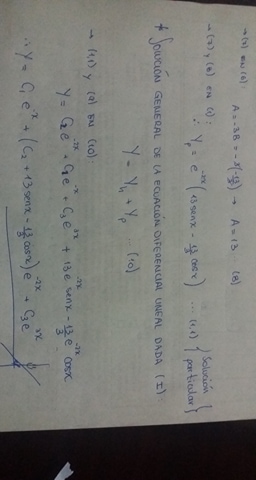 → (7) en (6): A = -3B = -3(-13/3) → A = 13 (8)
→ (7) y (8) en (1): ∴ Yp = e^-2x (13 senx - 13/3 cosx) ... (1,1) {Solución particular}
* SOLUCIÓN GENERAL DE LA ECUACIÓN DIFERENCIAL LINEAL DADA (I):
Y = Yh + Yp ... (10)
→ (1,1) y (9) EN (10):
Y = C2 e^-2x + C1 e^-x + C3 e^3x + 13 e^-2x senx - 13/3 e^-2x cosx
∴ Y = C1 e^-x + (C2 + 13 senx - 13/3 cosx) e^-2x + C3 e^3x